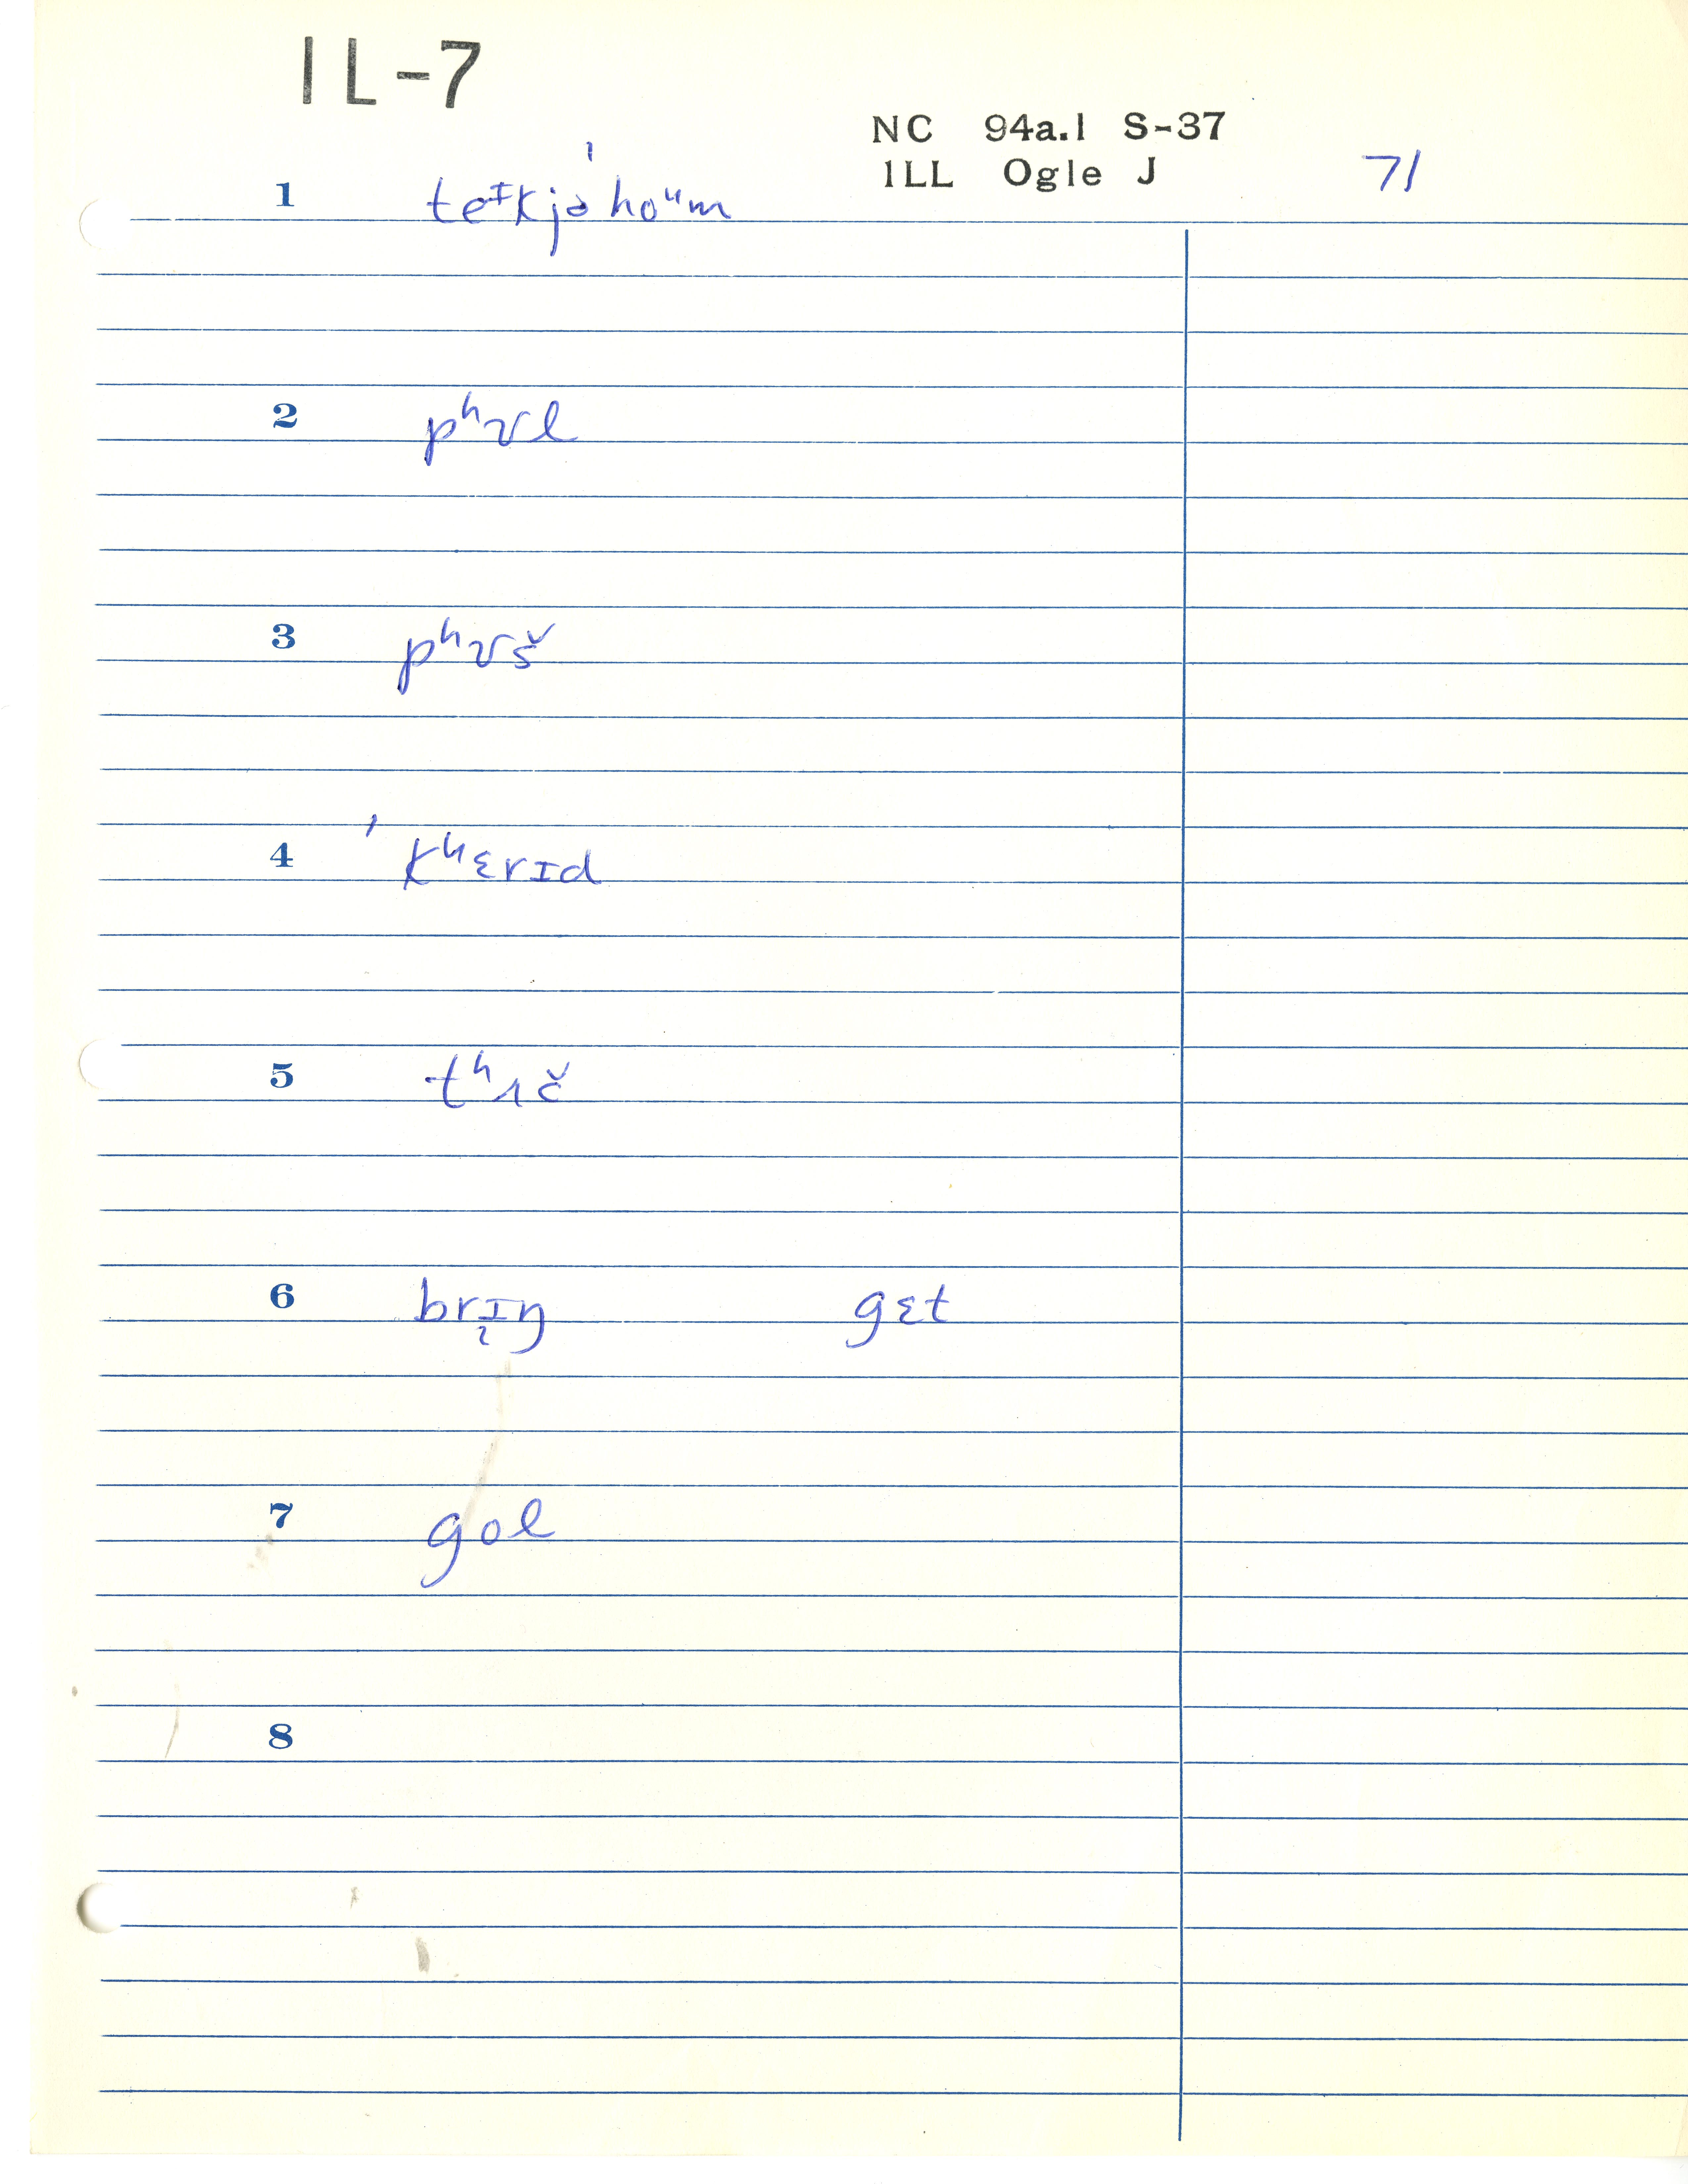 IL-7
NC 94a.1 S-37
ILL Ogle J 71
1 teᶦkjəˈhoᵘm
2 pʰʊl
3 pʰʊš
4 ˈkʰɛrɪd
5 tʰʌč
6 brɪ̨ŋ gɛt
7 gol
8